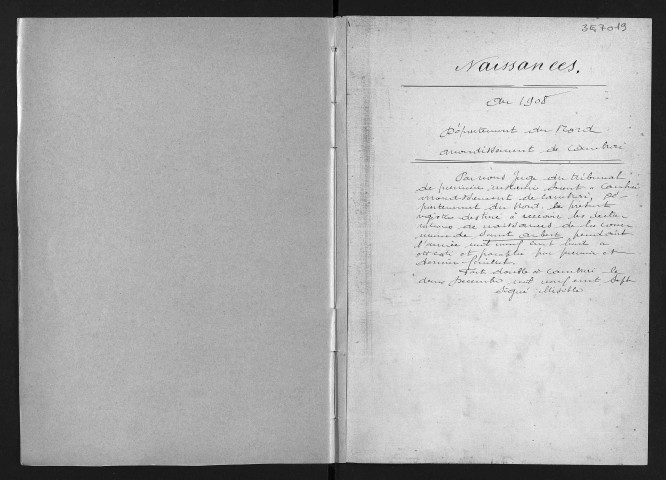 357019
Naissances.
An 1908
Département du Nord
arrondissement de Cambrai
Par nous Juge du tribunal
de première instance séant à Cambrai
arrondissement de Cambrai, dé-
partement du Nord, le présent
registre destiné à recevoir les décla-
rations de naissances de la com-
mune de Saint Aubert pendant
l'année mil neuf cent huit a
été coté et paraphé par premier et
dernier feuillet.
Fait double à Cambrai le
deux Décembre mil neuf cent Sept
Signé